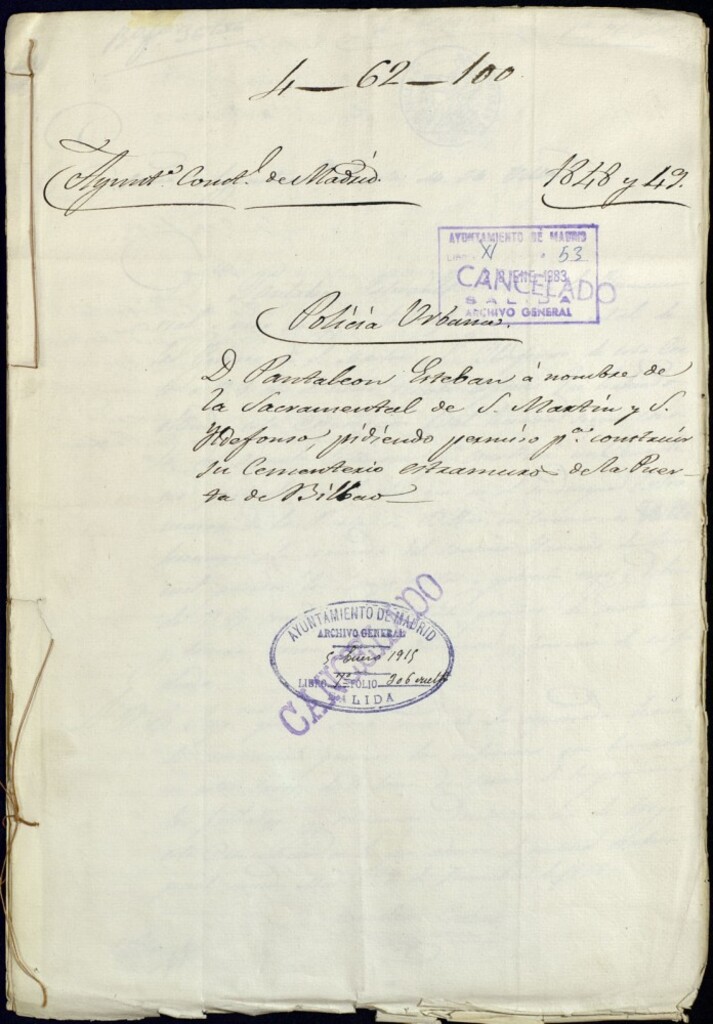 4—62—100
Ayuntº. Constl. de Madrid.
1848 y 49.
AYUNTAMIENTO DE MADRID
XI 53
ENE 1983
CANCELADO
SALIDA
ARCHIVO GENERAL
Policia Urbana.
D. Pantaleon Esteban á nombre de
la Sacramental de S. Martin y S.
Yldefonso, pidiendo permiso pª. construir
su Cementerio estramuros de la Puer-
ta de Bilbao
AYUNTAMIENTO DE MADRID
ARCHIVO GENERAL
5 Enero 1915
LIBRO 7º FOLIO 306 vuelto
SALIDA
CANCELADO